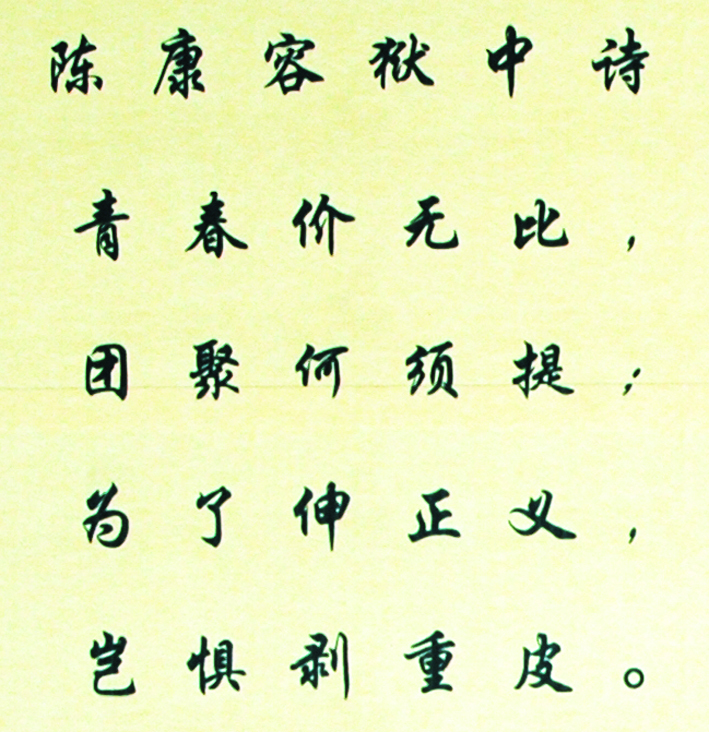 陈康容狱中诗
青春价无比，
团聚何须提；
为了伸正义，
岂惧剥重皮。